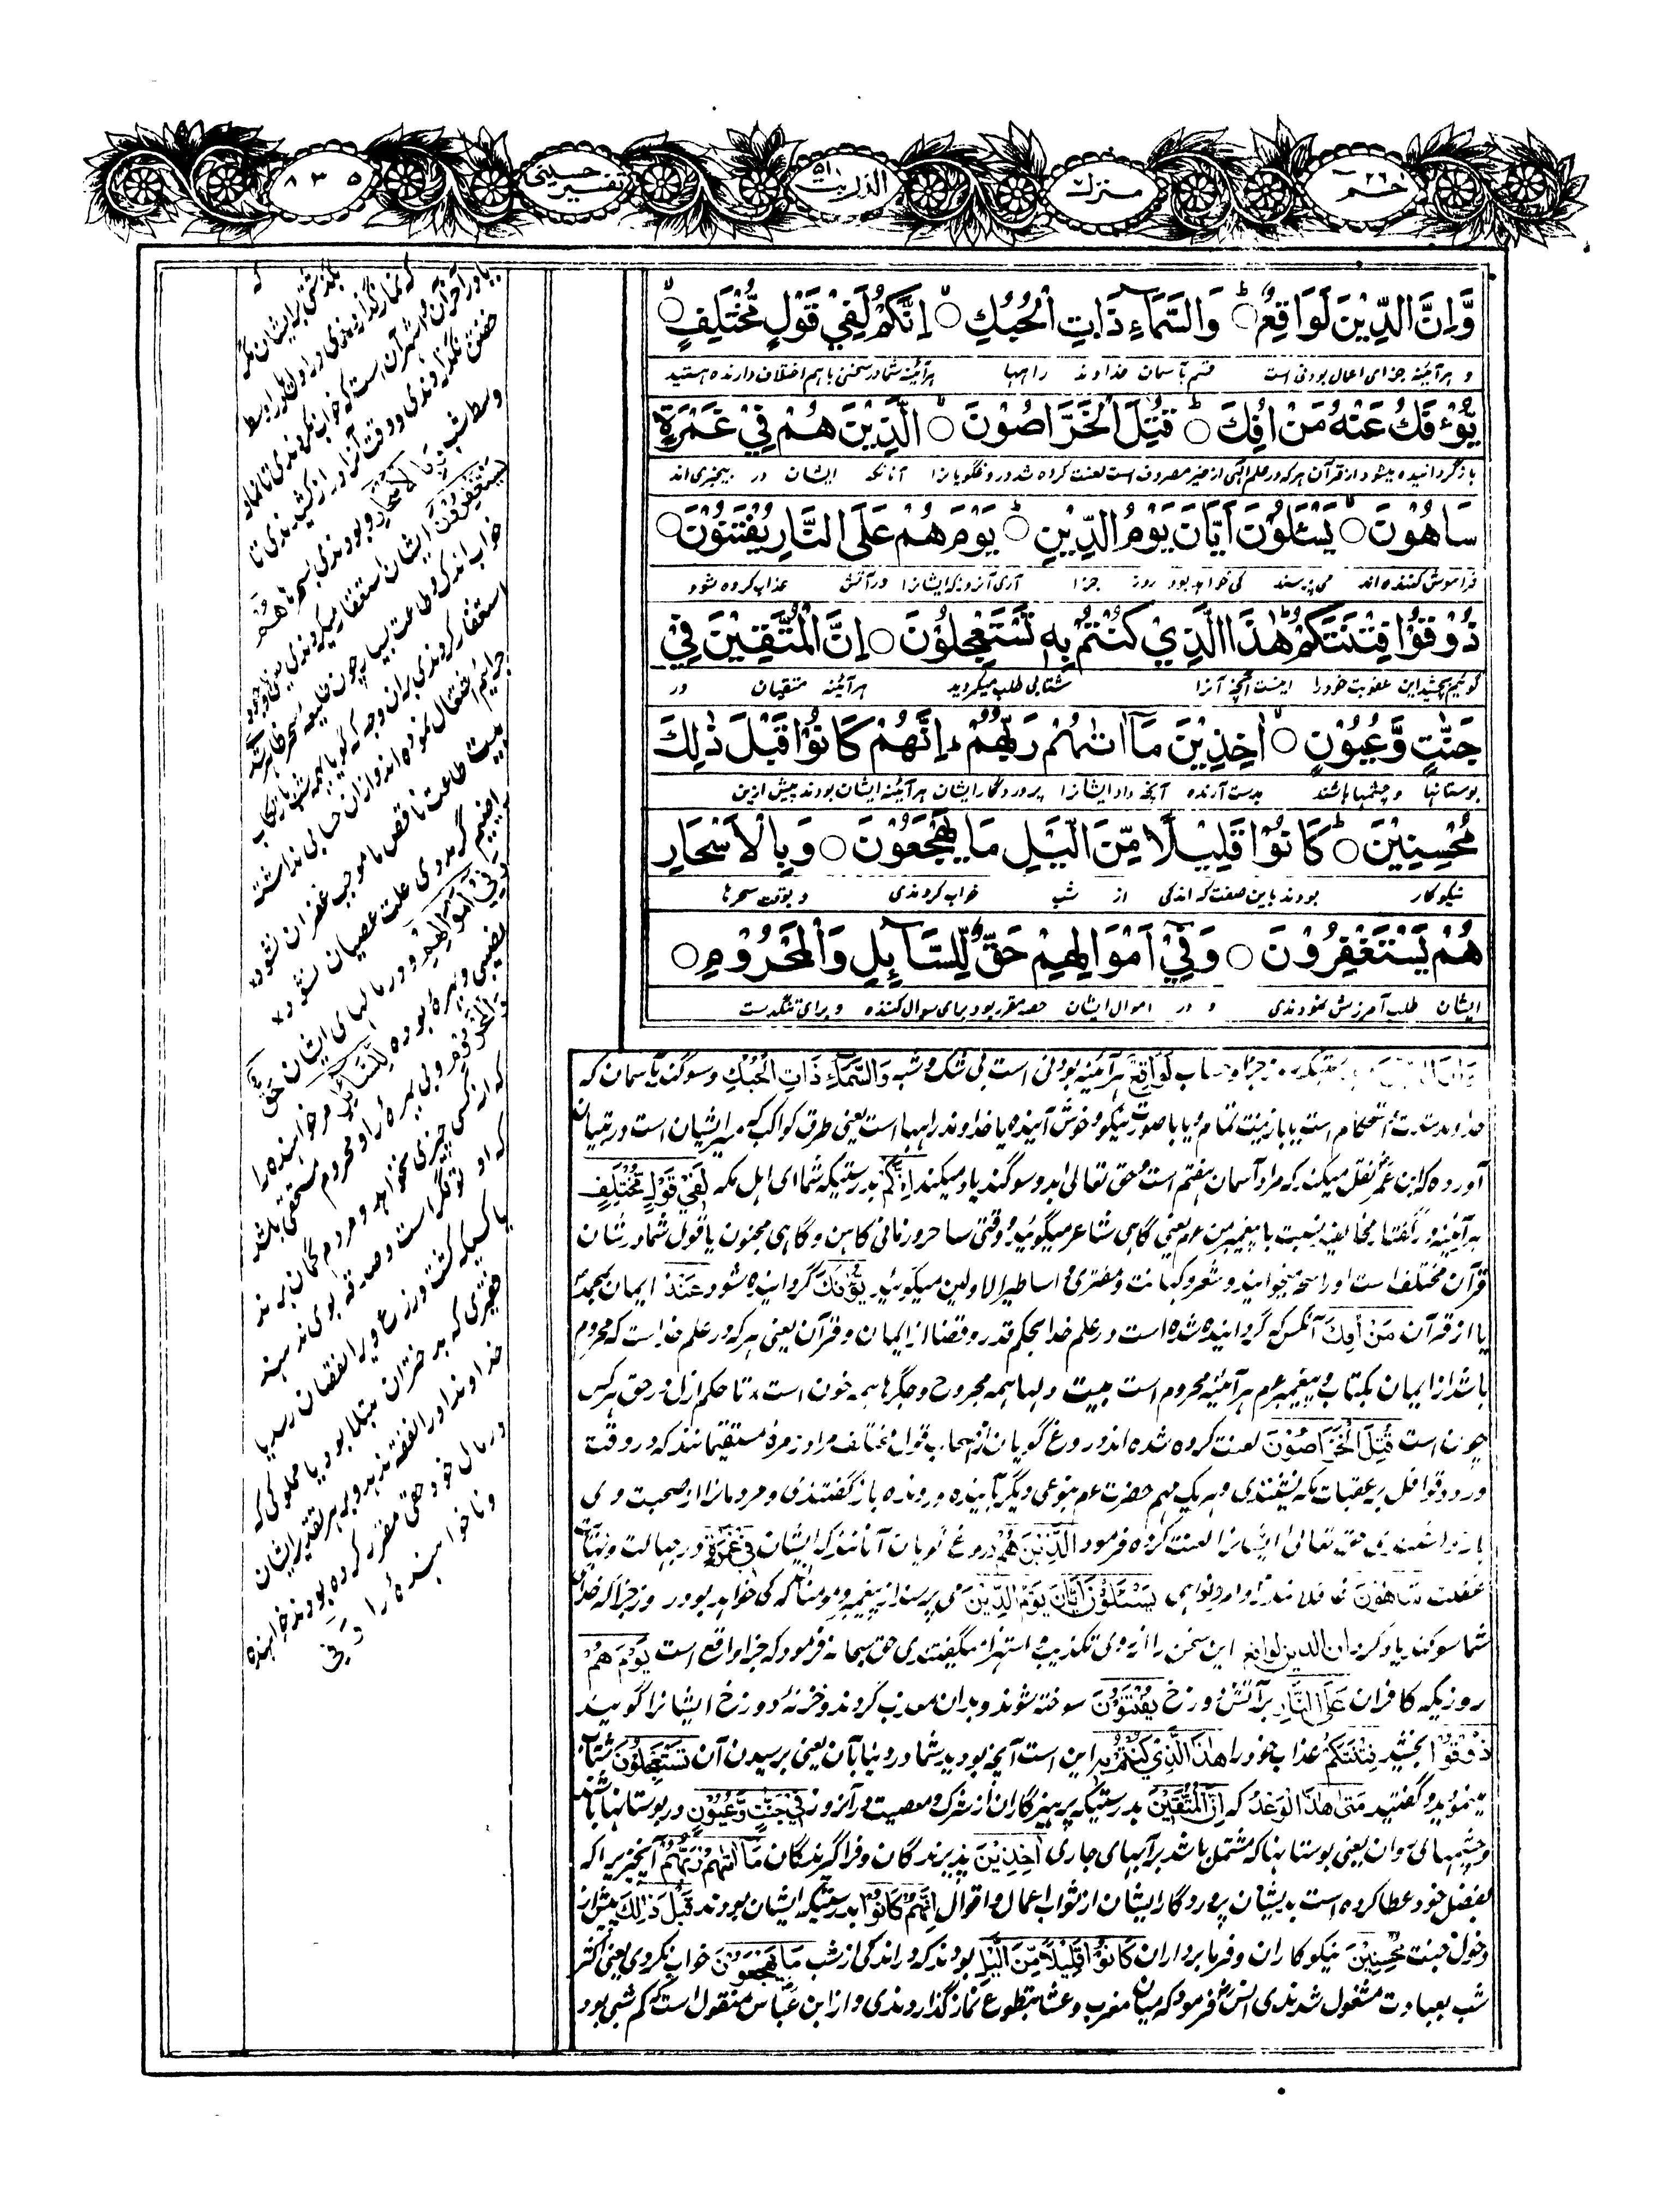 حم ٢٦
منزل ٧
الذريت ٥١
تفسير حسينى
٨٣٥
وَّاِنَّ الدِّيْنَ لَوَاقِعٌ ۝ وَالسَّمَآءِ ذَاتِ الْحُبُكِ ۝ اِنَّكُمْ لَفِيْ قَوْلٍ مُّخْتَلِفٍ ۝
و هر آئینه جزای اعمال بودنی است قسم بآسمان خداوند راهها هر آئینه شما در سخنی باهم اختلاف دارنده هستید
يُّؤْفَكُ عَنْهُ مَنْ اُفِكَ ۝ قُتِلَ الْخَرَّاصُوْنَ ۝ الَّذِيْنَ هُمْ فِيْ غَمْرَةٍ
بازگردانیده میشود از قرآن هر که در علم الهی از خیر مصروف است لعنت کرده شد دروغگویانرا آنانکه ایشان در بیخبری اند
سَاهُوْنَ ۝ يَسْـَٔلُوْنَ اَيَّانَ يَوْمُ الدِّيْنِ ۝ يَوْمَ هُمْ عَلَى النَّارِ يُفْتَنُوْنَ ۝
فراموش کننده اند می پرسند کی خواهد بود روز جزا آری آنروز که ایشانرا در آتش عذاب کرده شود
ذُوْقُوْا فِتْنَتَكُمْ هٰذَا الَّذِيْ كُنْتُمْ بِهٖ تَسْتَعْجِلُوْنَ ۝ اِنَّ الْمُتَّقِيْنَ فِيْ
گوئیم بچشید این عقوبت خود را اینست آنچه آنرا شتابی طلب میکردید هر آئینه متقیان در
جَنّٰتٍ وَّعُيُوْنٍ ۝ اٰخِذِيْنَ مَآ اٰتٰىهُمْ رَبُّهُمْ اِنَّهُمْ كَانُوْا قَبْلَ ذٰلِكَ
بوستانها و چشمها باشند بدست آرنده آنچه داد ایشانرا پروردگار ایشان هر آئینه ایشان بودند پیش ازین
مُحْسِنِيْنَ ۝ كَانُوْا قَلِيْلًا مِّنَ الَّيْلِ مَا يَهْجَعُوْنَ ۝ وَبِالْاَسْحَارِ
نیکو کار بودند باین صفت که اندکی از شب خواب کردندی و بوقت سحرها
هُمْ يَسْتَغْفِرُوْنَ ۝ وَفِيْٓ اَمْوَالِهِمْ حَقٌّ لِّلسَّآئِلِ وَالْمَحْرُوْمِ ۝
ایشان طلب آمرزش نمودندی و در اموال ایشان حصه مقرر بود برای سوال کننده و برای تنگدست
لَوَاقِعٌ هر آئینه بودنی است بی شک و شبه وَالسَّمَآءِ ذَاتِ الْحُبُكِ و سوگند بآسمان که
است یا بازینت تمام و یا با صورت نیکو و خوش آینده یا خداوند راهها است یعنی طرق کواکب که سیر ایشان است در تبیان
آورده که ابن عمر نقل میکند که مراد آسمان هفتم است و حق تعالی بدو سوگند یاد میکند اِنَّكُمْ بدرستیکه شما ای اهل مکه لَفِيْ قَوْلٍ مُّخْتَلِفٍ
نسبت با پیغمبر من یعنی گاهی شاعر میگوئید و وقتی ساحر و زمانی کاهن و گاهی مجنون یا قول شما در شان
قرآن مختلف است او را سحر میخوانید و شعر و کهانت و مفتری و اساطیر الاولین میگوئید يُؤْفَكُ گردانیده شود عَنْهُ از ایمان بمحمد
یا از قرآن مَنْ اُفِكَ آنکس که گردانیده شده است در علم خدا بحکم قدر و قضا از ایمان و قرآن یعنی هر که در علم خداست که محروم
باشد از ایمان بکتاب و پیغمبر هر آئینه محروم است بیت دلها همه مجروح و جگرها همه خون است تا حکم ازل در حق هر کس
چون است قُتِلَ الْخَرَّاصُوْنَ لعنت کرده شده اند دروغ گویان از اصحاب قول مختلف مراد زمره مقتسمانند که در وقت
ورود قوافل بر عقبات مکه نشستندی و هر یک مهم حضرت بنوعی دیگر بآینده و رونده بازگفتندی و مردمانرا از صحبت وی
باز داشتندی حق تعالی ایشانرا لعنت کرد و فرمود الَّذِيْنَ هُمْ دروغ گویان آنانند که ایشان فِيْ غَمْرَةٍ در جهالت و نهایت
غفلت سَاهُوْنَ غافلانند از اوامر و نواهی يَسْـَٔلُوْنَ اَيَّانَ يَوْمُ الدِّيْنِ می پرسند از پیغمبر و مومنان که کی خواهد بود روز جزا که خدای
شما سوگند یاد کرد ان الدین لواقع این سخن را از روی تکذیب و استهزا میگفتندی حق سبحانه فرمود که جزا واقع است يَوْمَ هُمْ
روزیکه کافران عَلَى النَّارِ بر آتش دوزخ يُفْتَنُوْنَ سوخته شوند و بدان معذب گردند و خزنه دوزخ ایشانرا گویند
ذُوْقُوْا بچشید فِتْنَتَكُمْ عذاب خود را هٰذَا الَّذِيْ كُنْتُمْ بِهٖ این است آنچه بودید شما در دنیا بآن یعنی برسیدن آن تَسْتَعْجِلُوْنَ شتاب
مینمودید و گفتید مَتٰى هٰذَا الْوَعْدُ که اِنَّ الْمُتَّقِيْنَ بدرستیکه پرهیزگاران از شرک و معصیت در آنروز فِيْ جَنّٰتٍ وَّعُيُوْنٍ در بوستانها باشند
و چشمهای روان یعنی بوستانها که مشتمل باشد بر آبهای جاری اٰخِذِيْنَ پذیرندگان و فراگیرندگان مَآ اٰتٰىهُمْ رَبُّهُمْ آنچیز را که
بفضل خود عطا کرده است بدیشان پروردگار ایشان از ثواب اعمال و اقوال اِنَّهُمْ كَانُوْا بدرستیکه ایشان بودند قَبْلَ ذٰلِكَ پیش از
دخول جنت مُحْسِنِيْنَ نیکوکاران و فرمانبرداران كَانُوْا قَلِيْلًا مِّنَ الَّيْلِ بودند که در اندکی از شب مَا يَهْجَعُوْنَ خواب نکردی یعنی اکثر
شب بعبادت مشغول شدندی انس فرمود که میان مغرب و عشا بتطوع نماز گذاردندی و از ابن عباس منقول است که کم شبی بود
که
بگذشتی بر ایشان مگر
که نماز گذاردندی در اول یا در اوسط
یا در آخر آن و اشهر آن است که خواب نکردندی تا نماز
خفتن نگزاردندی و وقت آنرا دراز کشیدندی تا
وسط شب وَبِالْاَسْحَارِ و بودندی بسحرها هُمْ
يَسْتَغْفِرُوْنَ ایشان استغفار میکردندی یعنی با وجود
خواب اندک و طاعت بسیار چون طلیعه سحر ظاهر شد
استغفار کردندی بران وجه که گویا همه شب بارتکاب
جرایم اشتغال نموده اند و از آن حسابی نداشته
بیت طاعت ناقص ما موجب غفران نشود
راضیم گر مددی علت عصیان نشود
وَفِيْٓ اَمْوَالِهِمْ و در مالهای ایشان حَقٌّ
نصیبی و بهره بوده لِّلسَّآئِلِ مر خواهنده را
وَالْمَحْرُوْمِ و بی بهره را و محروم مستحقی باشد
که از کسی چیزی نخواهد و مردم گمان برند
که او توانگر است و صدقه بوی ندهند
یا کسیکه کشت و زرع ویرا نقصان رسد یا
فقیری که بدختران مبتلا بود یا مملوکی که
خداوند او را نفقه ندهد و بهر تقدیر ایشان
در مال خود حقی مقرر کرده بودند خواهنده
و ناخواهنده را وَفِي